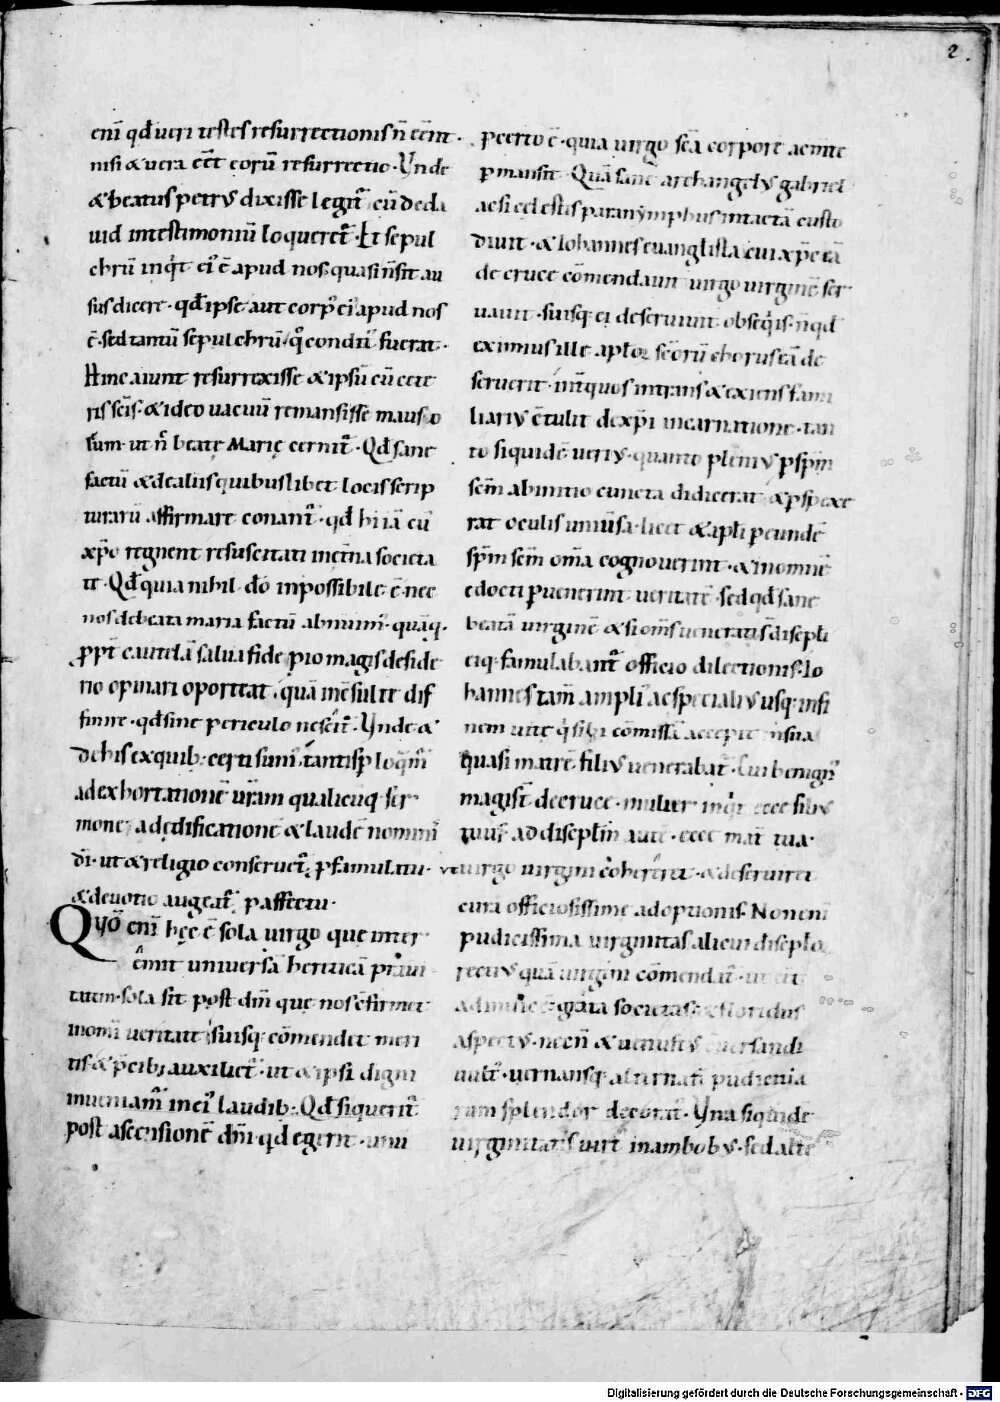 2.
enī qđ ueri testes resurrectionis ñ eēnt.
nisi & uera eēt eorū resurrectio. Vnde
& beatus petrus dixisse legit̄ cū de da
uid intestimoniū loqueret̄. Et sepul
chrū inq̇t ei᾽ ē apud nos. quasi ñ sit au
sus dicere. qđ ipse aut corp᾽ ei᾽ apud nos
ē. sed tantū sepulchrū q̊ conditū fuerat.
Hinc aiunt resurrexisse & ipsū cū cete
ris scīs. & ideo uacuū remansisse mauso
leum. ut ñ beatę Marię cernit̄. Qđ sane
factū & de aliis quibuslibet locis scrip
turarū affirmare conant̄. qđ hi iā cū
xp̄o regnent resuscitati inet̄na societa
te. Qđ quia nihil dō inpossibile ē. nec
nos de beata maria factū abnuim᾽. quāq̄.
ꝓpt̄ cautelā salua fide pio magis deside
rio opinari oporteat. quā incōsulte dif
finire. qđ sine periculo nescit̄. Vnde &
de his ex quib; certi sum᾽. tantisp̄ loq̄m᾽
ad exhortationē urām qualicuq; ser
mone. ad ędificationē & laudē nomini
dī. ut & religio conseruet̄. p̄ famulatū.
& deuotio augeat̄. p̄ affectu.
Quō enī hęc ē sola uirgo que inter
emit uniuersā hereticā praui
tatem. sola sit post dm̄ que nos c̄firmet
inomī ueritate. suisq; cōmendet meri
tis & p̄cib; auxiliet̄. ut & ipsi digni
inueniam᾽ in ei᾽ laudib; Qđ si querit̄
post ascensionē dnī qđ egerit. uni
p̄ certo ē. quia uirgo scā corpore ac mte
p̄mansit. Quā sane archangelus gabriel
ac si cęlestis paranymphus intactā custo
diuit. & Iohannes euanglista cui xp̄c eā
de cruce cōmendauit uirgo uirginē ser
uauit. suisq; ei deseruiuit obseq̇is. ñ qđ
eximius ille aplōꝝ scōrū chorus eā de
seruerit. int̄ quos intrans & exiens fami
liarius c̄tulit de xp̄i incarnatione. tan
to siquidē uerius. quanto plenius p̄ spm̄
scm̄ ab initio cuncta didicerat & p̄spexe
rat oculis uniūsa. licet & apli p̄ eundē
spm̄ scm̄ om̄a cognouerint. & in omnē
edocti p̄uenerint ueritatē. sed qđ sane
beatā uirginē & si om̄s ueneratis discipli
eiq; famulabant̄ officio dilectionis. Io
hannes tam̄ ampli᾽ ac specialius usq; in fi
nem uitę q̇ sibi cōmissā accepit in sua
quasi matrē filius uenerabat̄. Cui benign᾽
magist̄ de cruce. mulier inq̇t ecce filius
tuus. ad disciplm̄ aut̄. ecce mat̄ tua.
ut uirgo uirgini cohereret. & deseruiret
cura officiosissime adoptionis. Non enī
pudicissima uirginitas alicui discipło
rectius quā uirgini cōmendat̄. ut eēt
adinuicē grata societas. & floridus
aspectus. necñ & uenustus cōuersandi
uult̄. uernansq; alternati pudicicia
rum splendor decorat̄. Vna siquide
uirginitatis uirt̄ in ambobus. sed alte
Digitalisierung gefördert durch die Deutsche Forschungsgemeinschaft - DFG